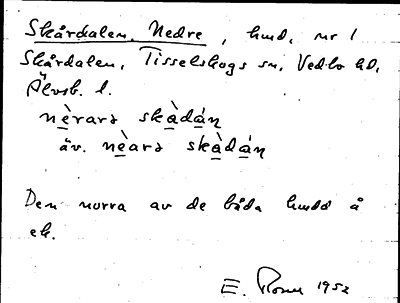 Skårdalen, Nedre, hmd, nr 1
Skårdalen, Tisselskogs sn, Vedbo hd,
Älvsb. l.
nèrarə skàdán
äv. nèarə skàdán
Den norra av de båda hmdd å
ek.
E. 1952